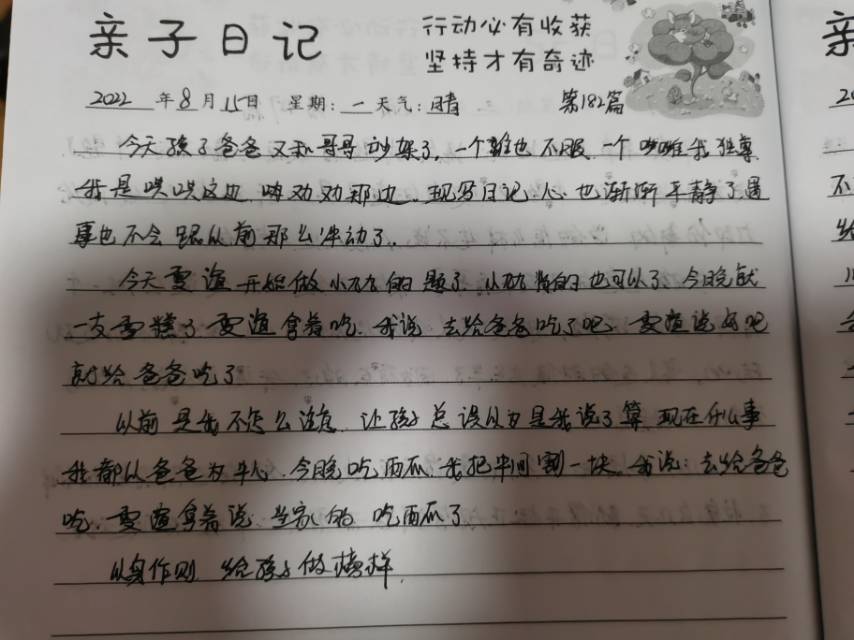 亲子日记
行动必有收获
坚持才有奇迹
2022年8月15日 星期:一 天气:晴 第182篇
今天孩子爸爸又和哥哥吵架了,一个谁也不服,一个唯我独尊
我是哄哄这边,劝劝那边,现写日记心也渐渐平静了遇
事也不会跟以前那么冲动了。
今天雯谊开始做小a的题了,今晚就
一支雪糕了,雯谊拿着吃,我说去给爸爸吃了吧,雯谊说好吧
就给爸爸吃了
以前是我不怎么注意,让孩子总误以为是我说了算,现在什么事
我都以爸爸为中心,今晚吃西瓜,我把中间割一块,我说:去给爸爸
吃,雯谊拿着说,当家的吃西瓜了
以身作则,给孩子做榜样,
亲